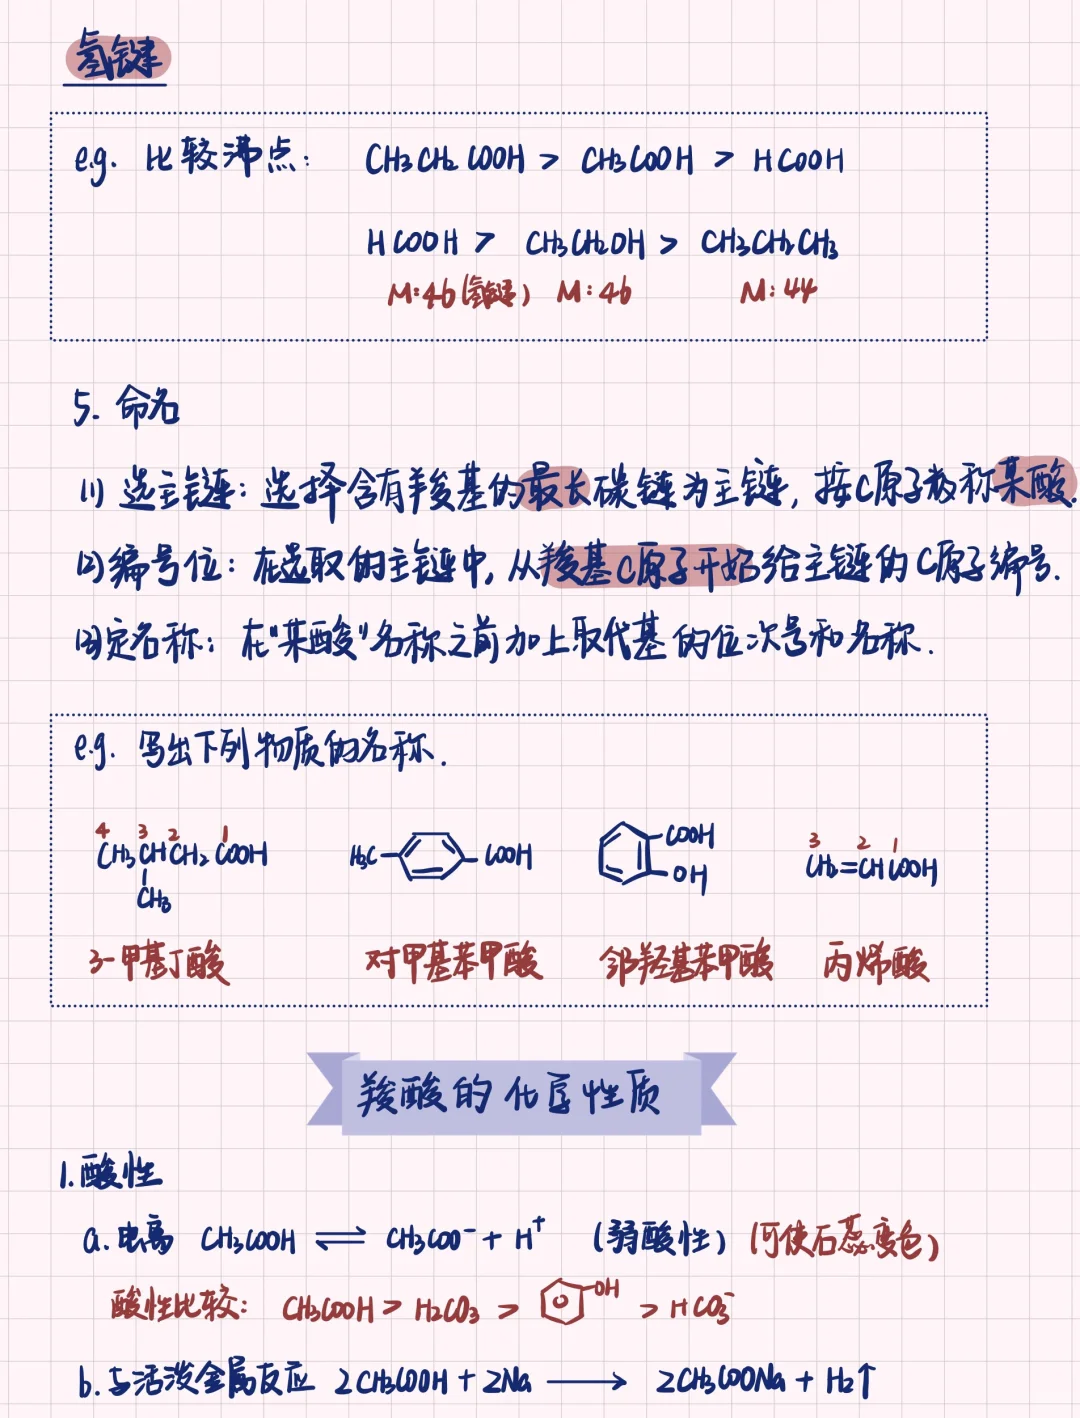 氢键
e.g. 比较沸点: CH3CH2COOH > CH3COOH > HCOOH
HCOOH > CH3CH2OH > CH3CH2CH3
M:46(氢键) M:46 M:44
5. 命名
(1) 选主链: 选择含有羧基的最长碳链为主链, 按C原子数称某酸.
(2) 编号位: 在选取的主链中, 从羧基C原子开始给主链的C原子编号.
(3) 定名称: 在"某酸"名称之前加上取代基的位次号和名称.
e.g. 写出下列物质的名称.
4 3 2 1 3 2 1
CH3CHCH2COOH H3C- -COOH -COOH -OH CH2=CHCOOH
CH3
3-甲基丁酸 对甲基苯甲酸 邻羟基苯甲酸 丙烯酸
羧酸的化学性质
1. 酸性
a. 电离 CH3COOH ⇌ CH3COO⁻ + H⁺ (弱酸性) (可使石蕊变色)
酸性比较: CH3COOH > H2CO3 > -OH > HCO3⁻
b. 与活泼金属反应 2CH3COOH + 2Na → 2CH3COONa + H2↑